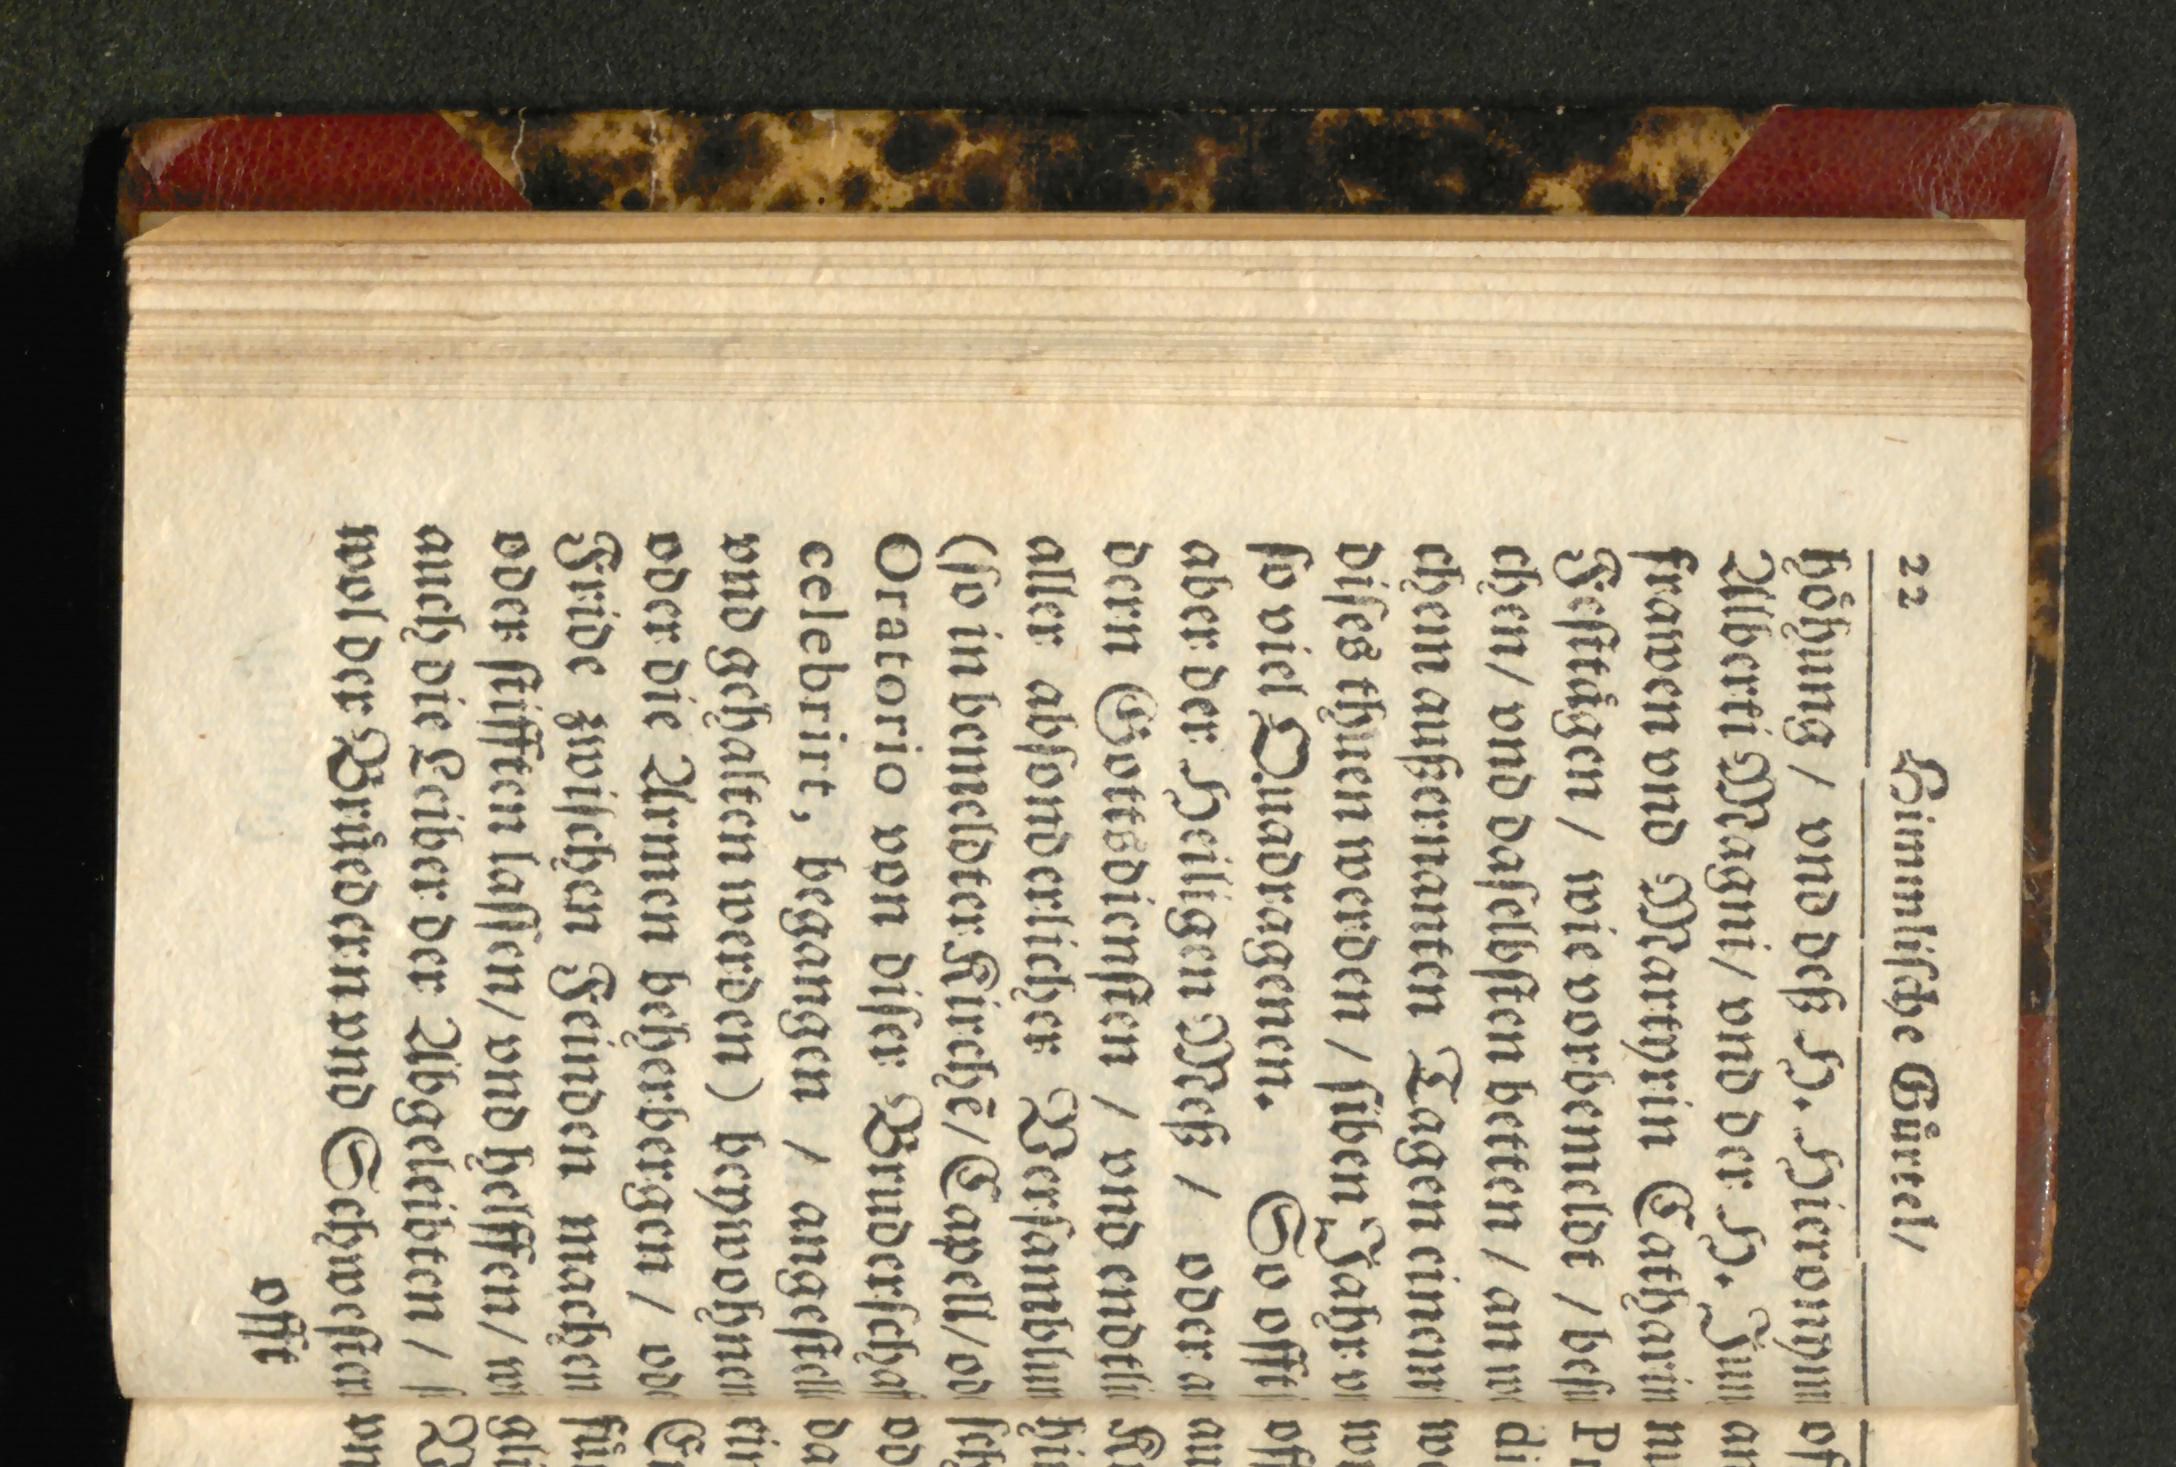 22 Himmlische Gürtel/
höhung / vnd deß H. Hieronym
Alberti Magni/ vnd der H. Jun
frawen vnd Martyrin Catharin
Festtägen / wie vorbemeldt / besu
chen/ vnd daselbsten betten/ an w
chem außernanten Tagen einem
dises thuen werden / siben Jahr v
so viel Quadragenen. So offt
aber der Heiligen Meß / oder a
dern Gottsdiensten / vnd endtli
aller absonderlicher Versamblun
(so in bemeldter Kirchē/ Capell/ od
Oratorio von diser Bruderschaf
celebrirt, begangen / angestell
vnd gehalten werden) beywohnen
oder die Armen beherbergen / ode
Fride zwischen Feinden machen
oder stifften lassen/ vnd helffen/ w
auch die Leiber der Abgeleibten / s
wol der Brüdern vnd Schwestern
offt
of
an
nu
P
di
we
wu
off
au
K
hin
sch
od
da
ein
E
für
gli
V
vn